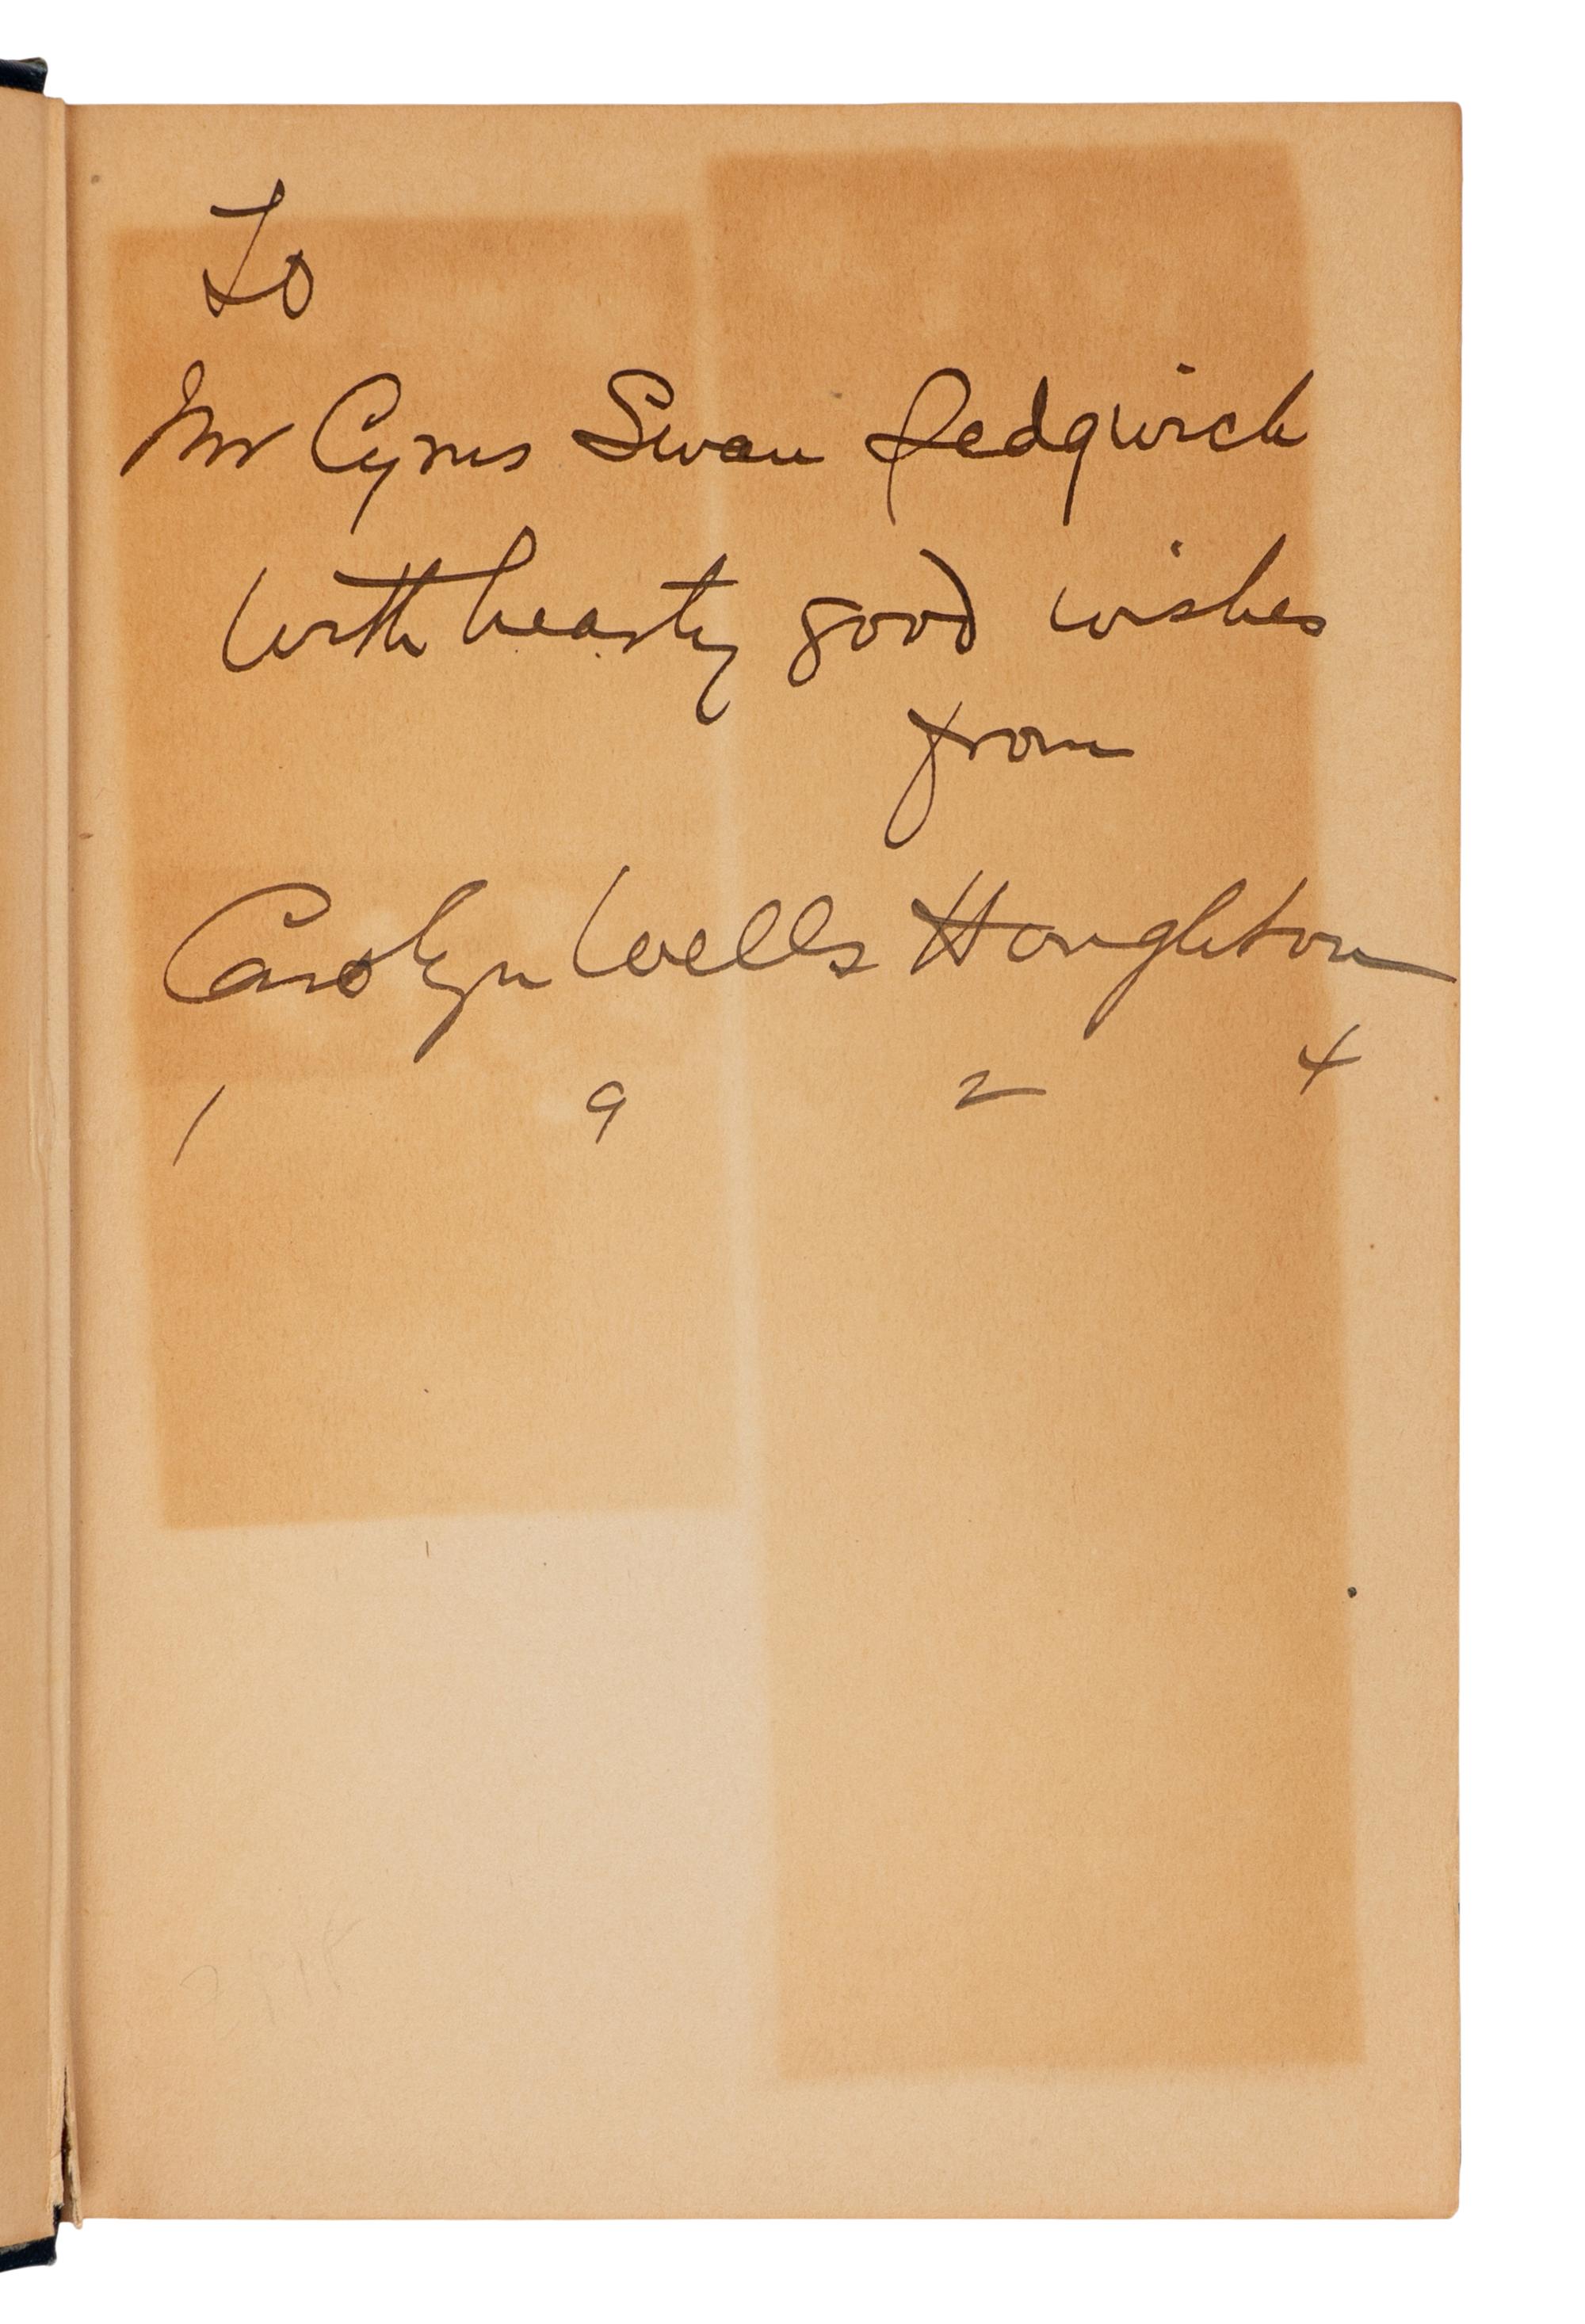 To
Mr Cyrus Swan Sedgwick
With hearty good wishes
from
Carolyn Wells Houghton
1 9 2 4